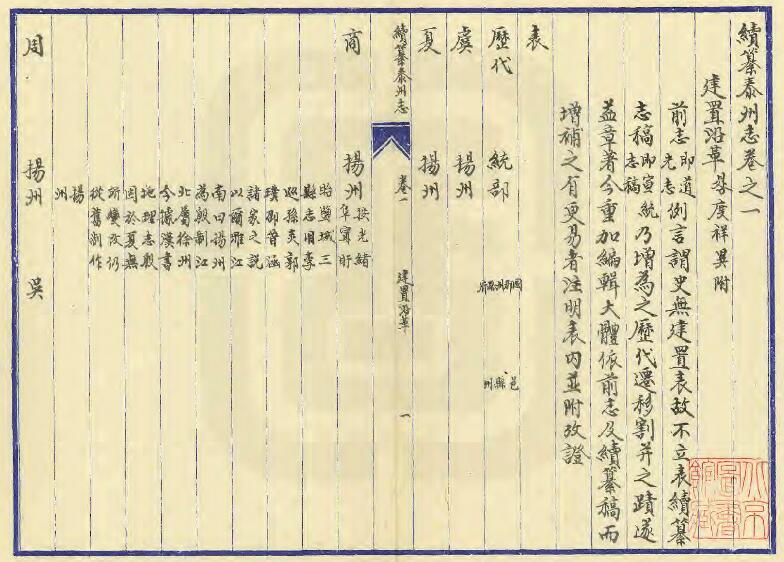 續纂泰州志卷之一
建置沿革 晷度祥異附
前志即道光志例言謂史無建置表故不立表續纂
志稿即宣統志稿乃增為之歷代遷移割并之蹟遂
益章著今重加編輯大體依前志及續纂稿而
增補之有更易者注明表內並附攷證
表
歷代 統部 國郡州路府 邑縣州
虞 揚州
夏 揚州
續纂泰州志 卷一 建置沿革 一
商 揚州 按光緒阜寧盱
眙獎城三
縣志旧李
巡孫炎郭
璞邵晉涵
諸家之說
以爾雅江
南曰揚州
為殷制江
北屬徐州
今據漢書
地理志殷
因於夏無
所變改仍
從舊制作
揚州
周 揚州 吳